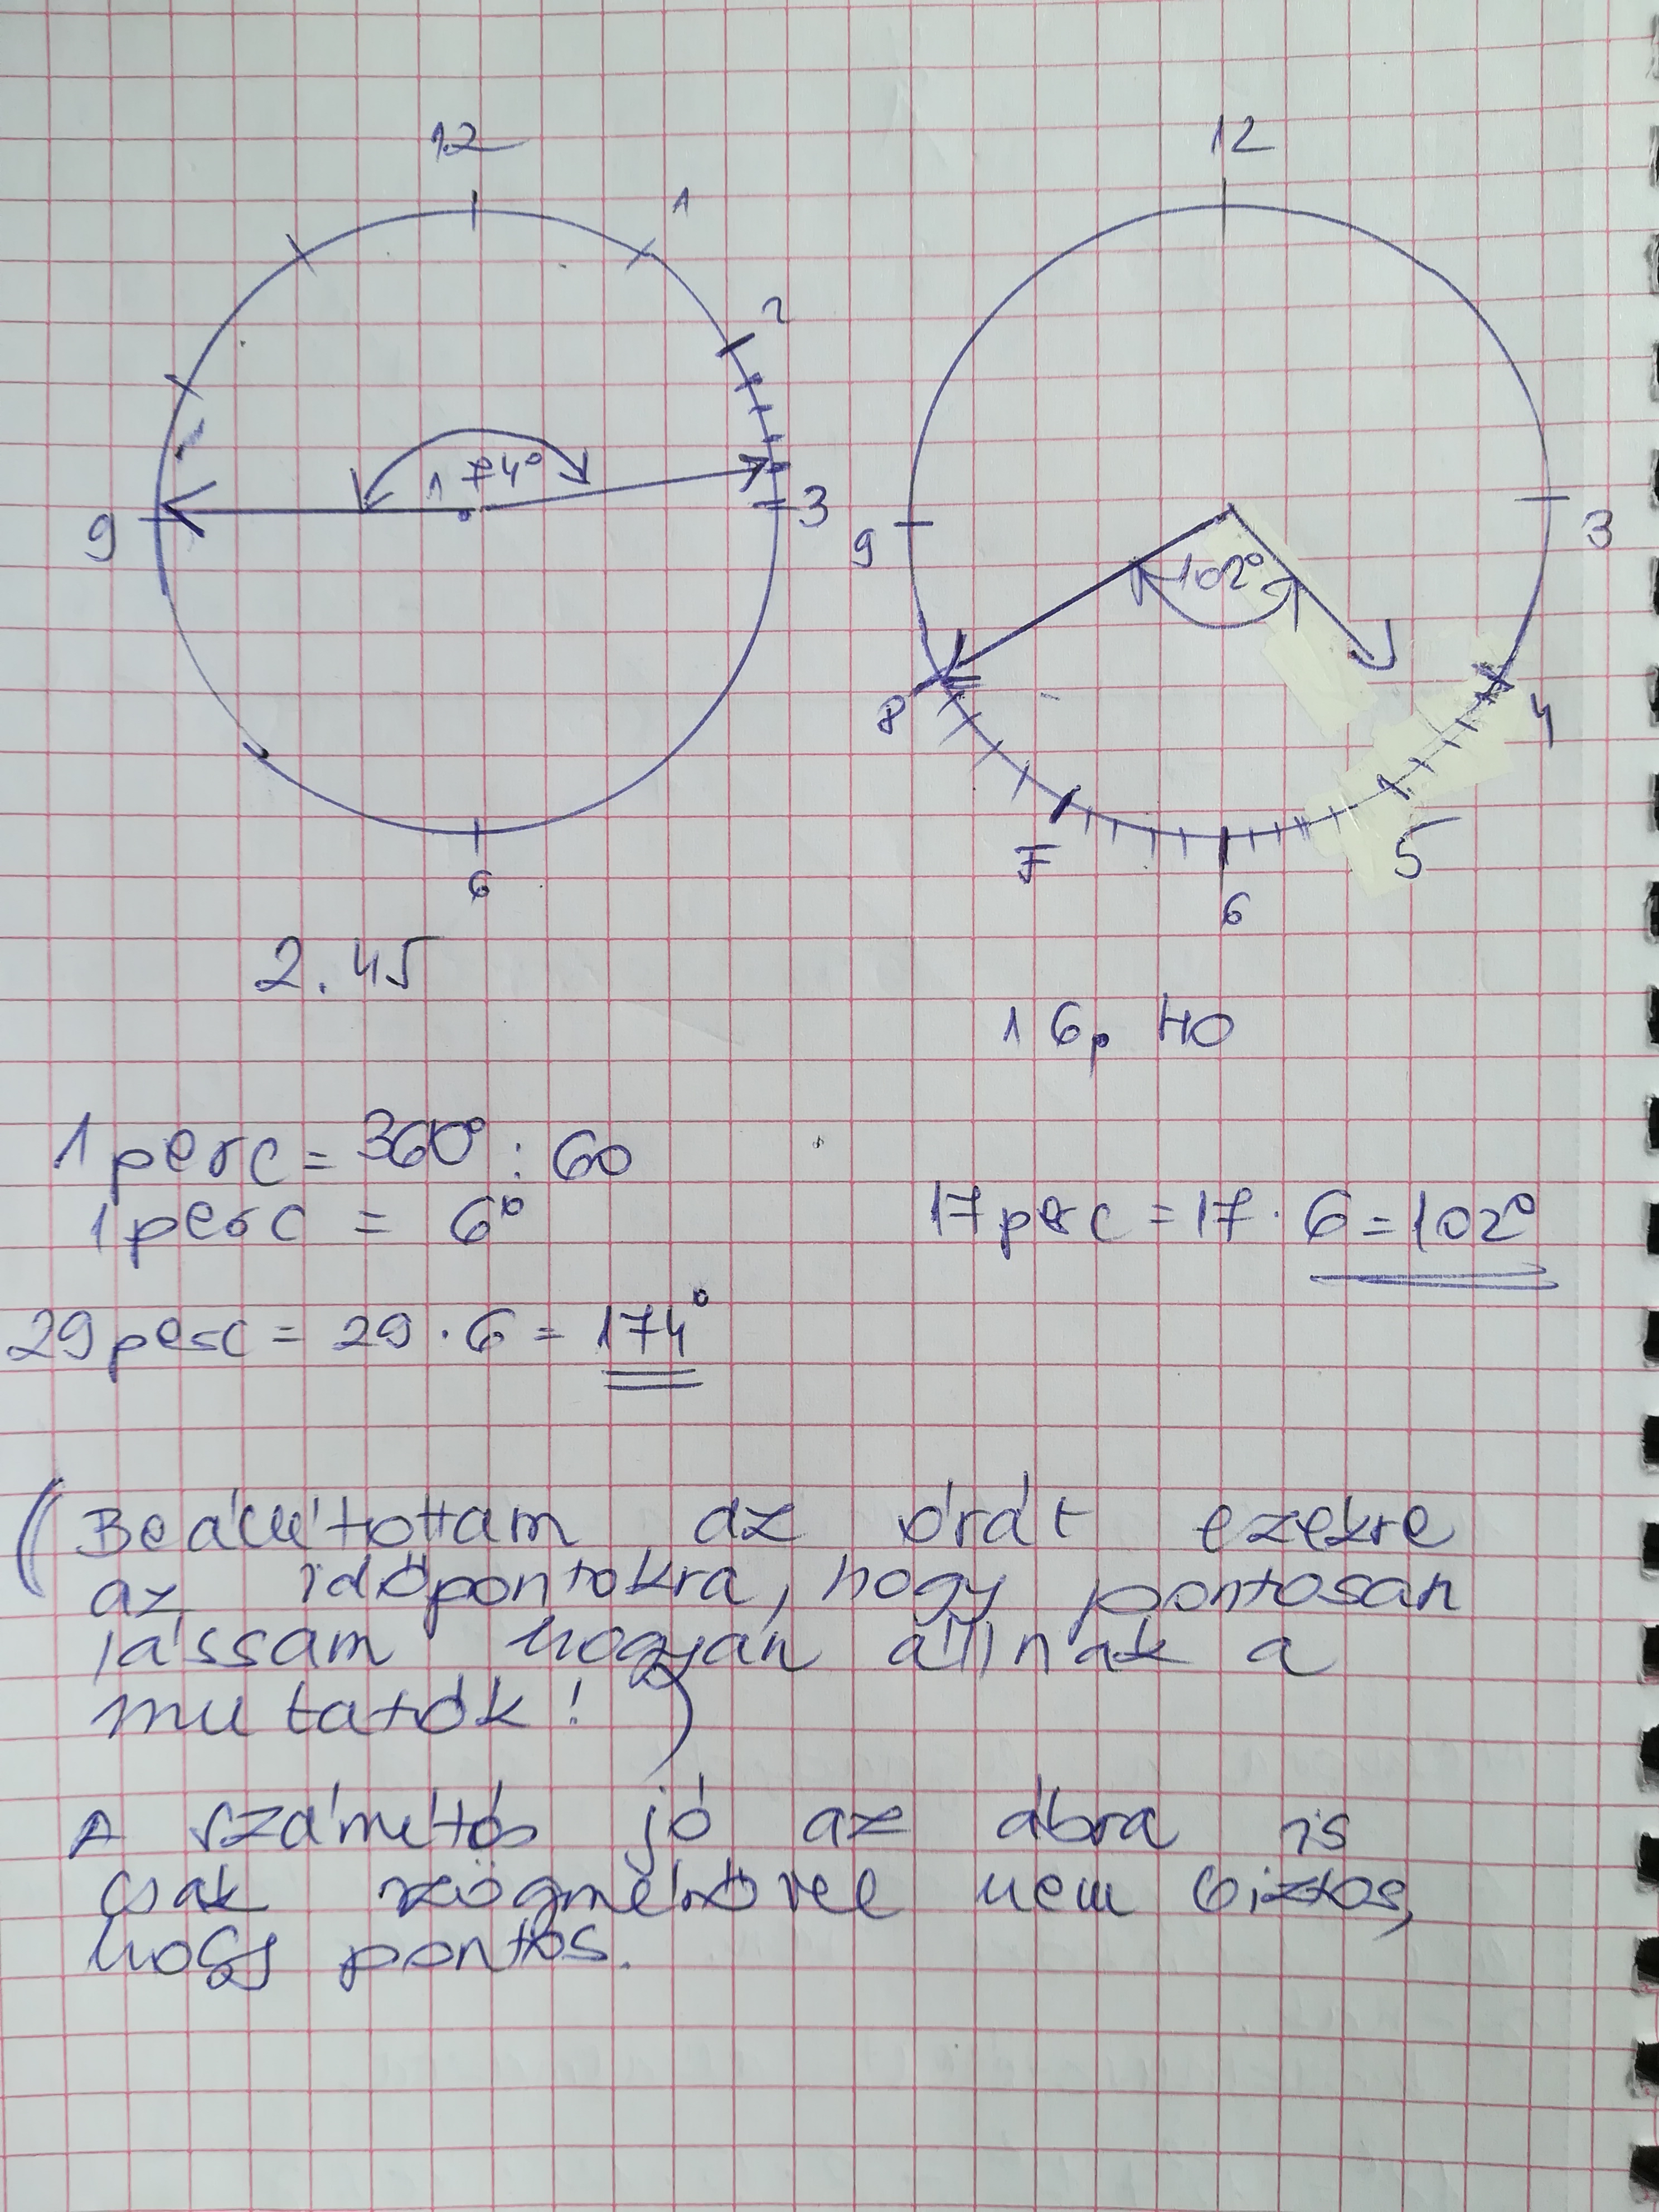 12
1
2
174°
9
3
6
12
102°
9
3
8
4
7
5
6
2.45
16, 40
1 perc = 360° : 60
1 perc = 6°
17 perc = 17 · 6 = 102°
29 perc = 29 · 6 = 174°
(Beállítottam az órát ezekre
az időpontokra, hogy pontosan
lássam hogyan állnak a
mutatók!)
A számítás jó az ábra is
csak szögmérővel nem biztos,
hogy pontos.